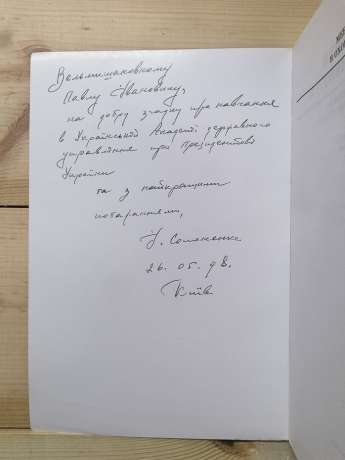 Вельмишановному
Павлу Івановичу,
на добру згадку про навчання
в Українській Академії державного
управління при Президентові
України
та з найкращими
побажаннями,
26.05.98.
Київ